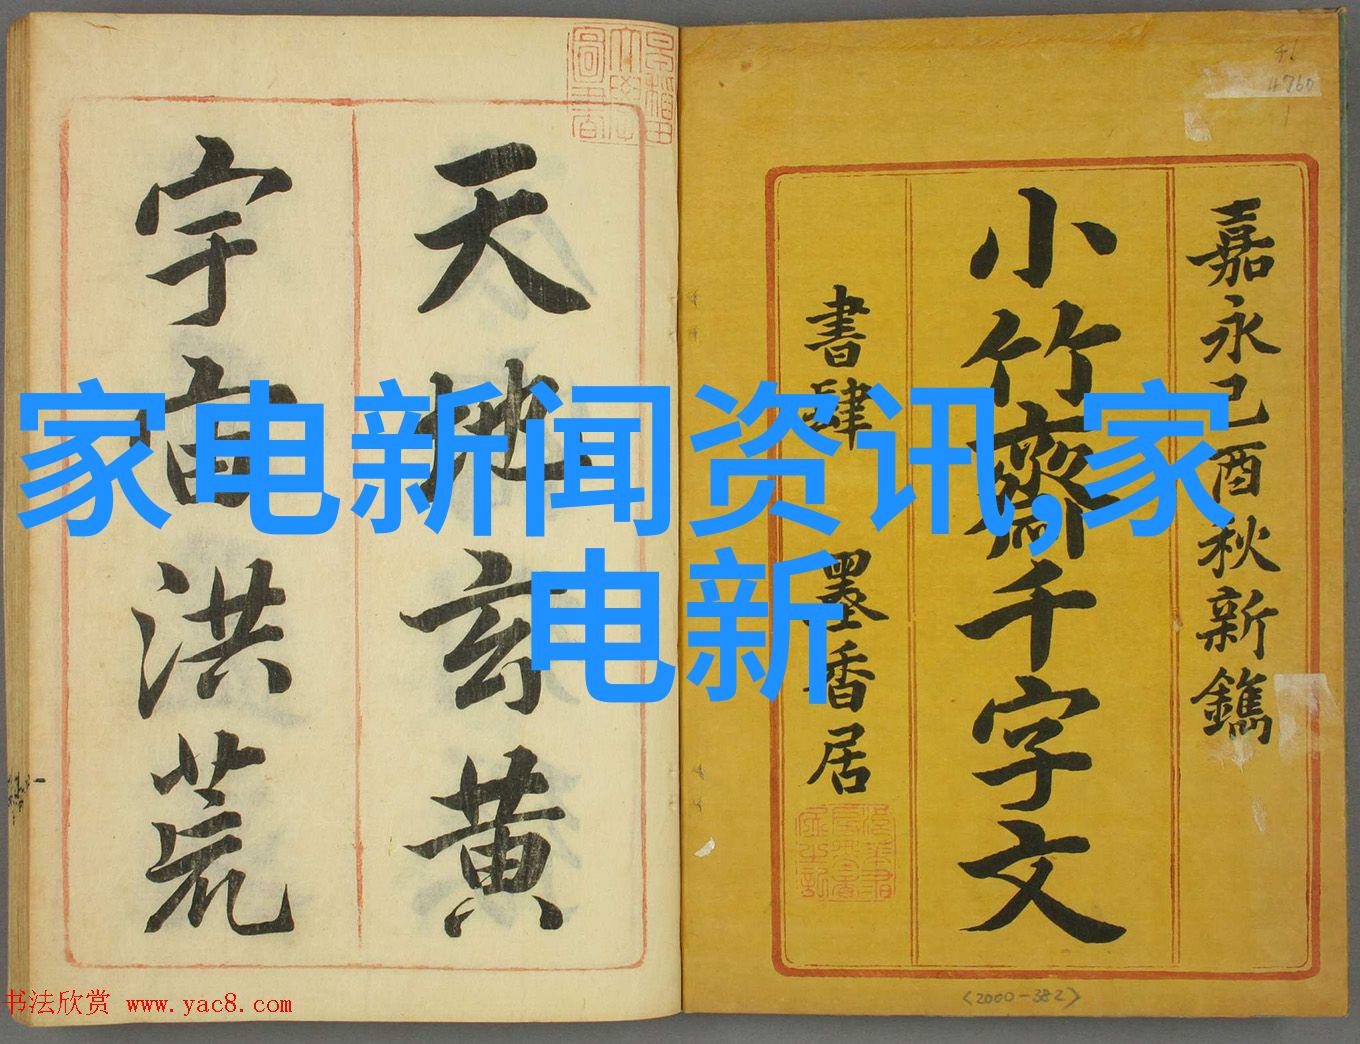 嘉永己酉秋新鐫
小竹齋千字文
書肆 墨香居
天地玄黃
宇宙洪荒
家电新闻资讯,家
电新
46
4760
<2000-382>
书法欣赏 www.yac8.com